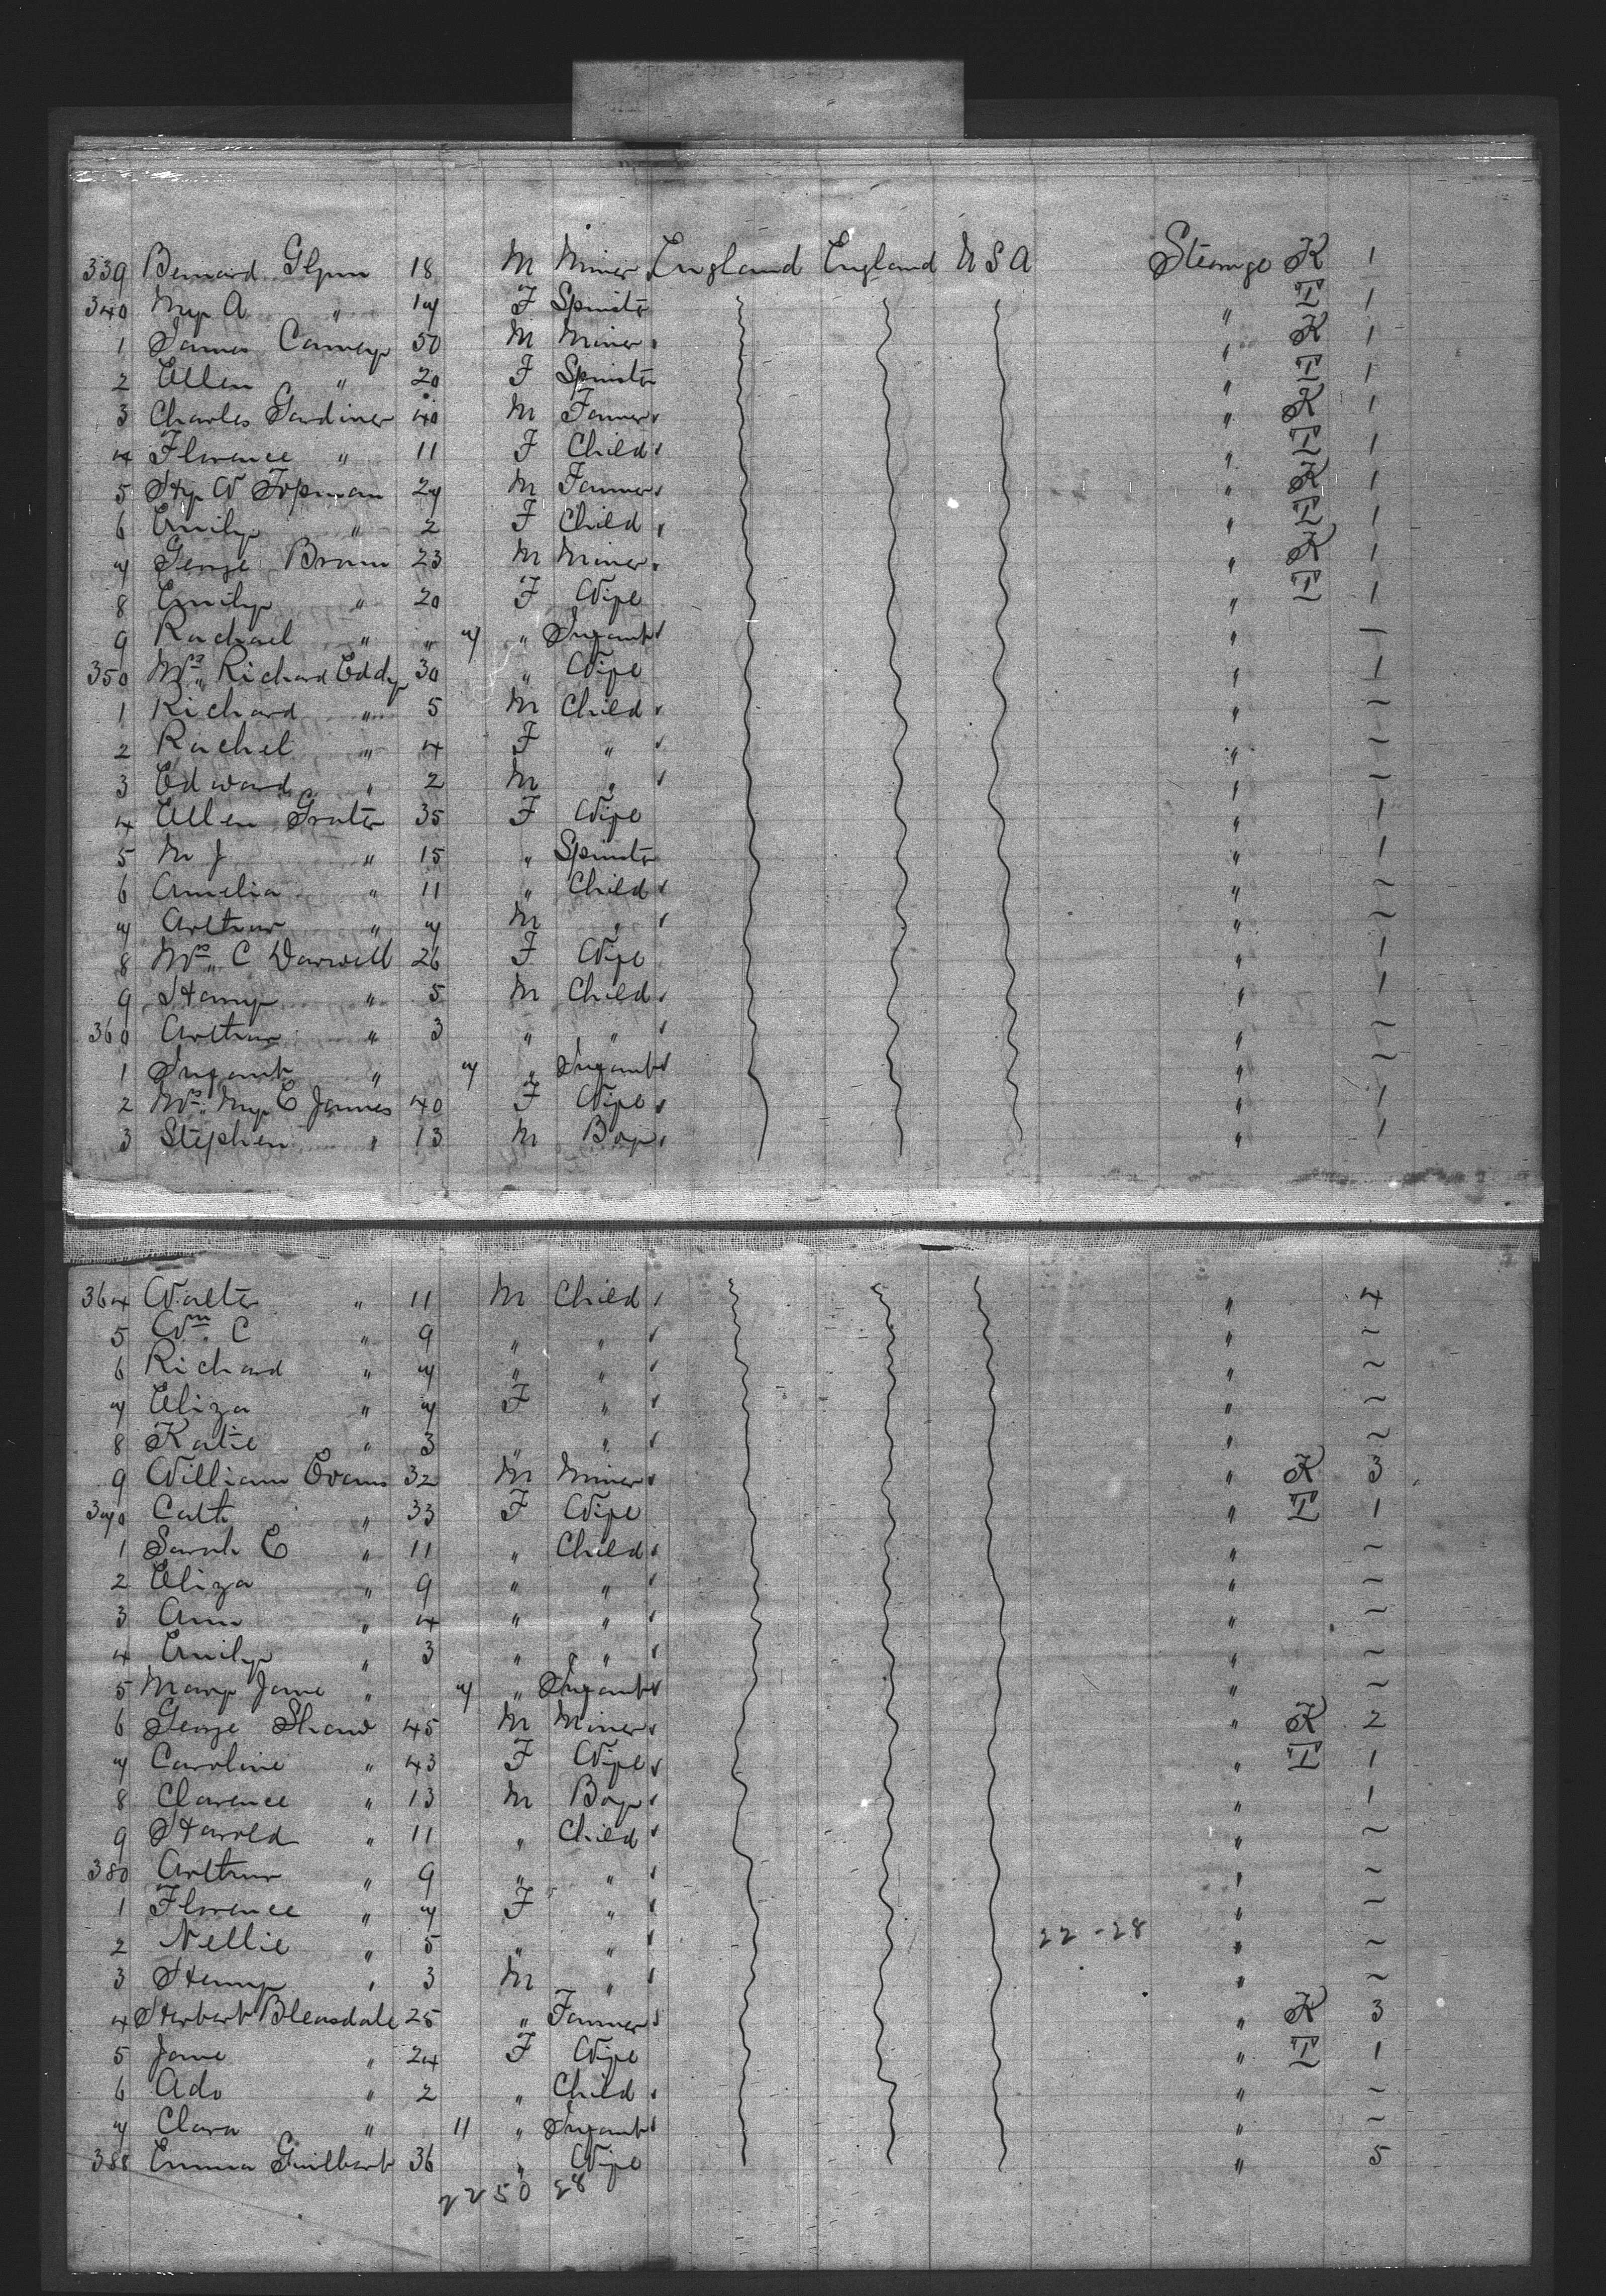 339 Bernard Glynn 18 M Miner England England U S A Steerage K 1
340 My A " 17 F Spinster " I 1
1 James Carney 50 M Miner " K 1
2 Ellen " 20 F Spinster " I 1
3 Charles Gardiner 40 M Farmer " K 1
4 Florence " 11 F Child " I 1
5 Hy W Topman 27 M Farmer " K 1
6 Emily " 2 F Child " I 1
7 George Brown 23 M Miner " K 1
8 Emily " 20 F Wife " I 1
9 Rachael " " 7 " Infant " —
350 Mrs Richard Eddy 30 " Wife " 1
1 Richard " 5 M Child " ~
2 Rachel " 4 F " " ~
3 Edward " 2 M " " ~
4 Ellen Grater 35 F Wife " 1
5 M J " 15 " Spinster " 1
6 Amelia " 11 " Child " ~
7 Arthur " 7 M " " ~
8 Mrs C Darwell 26 F Wife " 1
9 Harry " 5 M Child " 1
360 Arthur " 3 " " " ~
1 Infant " 7 " Infant " ~
2 Mrs My E James 40 F Wife " 1
3 Stephen " 13 M Boy " 1
364 Walter " 11 M Child " 4
5 Wm C " 9 " " " ~
6 Richard " 7 " " " ~
7 Eliza " 7 F " " ~
8 Katie " 3 " " " ~
9 William Evans 32 M Miner " K 3
370 Cath " 33 F Wife " I 1
1 Sarah E " 11 " Child " ~
2 Eliza " 9 " " " ~
3 Ann " 4 " " " ~
4 Emily " 3 " " " ~
5 Mary Jane " 7 " Infant " ~
6 George Shaw 45 M Miner " K 2
7 Caroline " 43 F Wife " I 1
8 Clarence " 13 M Boy " 1
9 Harold " 11 " Child " ~
380 Arthur " 9 " " " ~
1 Florence " 7 F " " ~
2 Nellie " 5 " " 22-28 " ~
3 Henry " 3 M " " ~
4 Herbert Bleasdale 25 " Farmer " K 3
5 Jane " 24 F Wife " I 1
6 Ada " 2 " Child " ~
7 Clara " 11 " Infant " ~
388 Emma Guilbert 36 " Wife " 5
22 50 28